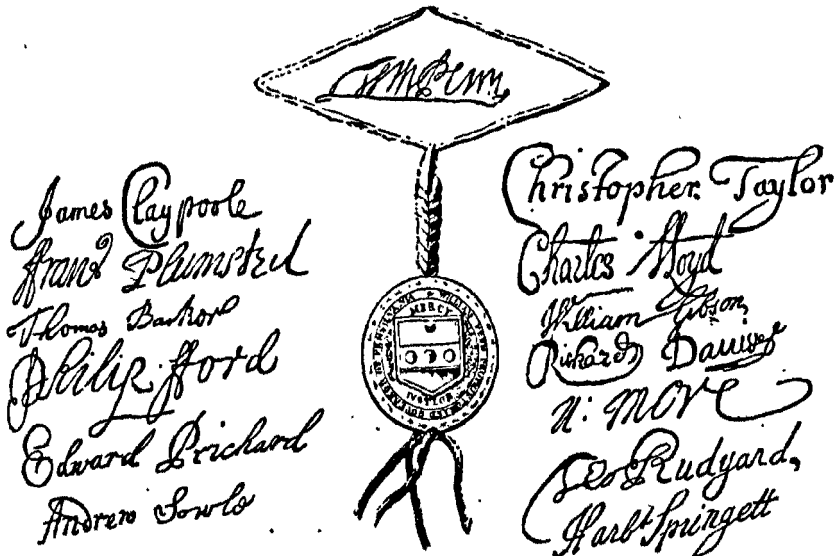 Wm Penn
James Claypoole
ffrans Plumsted
Thomas Barker
Philip fford
Edward Prichard
Andrew Sowle
MERCY
IVSTICE
Christopher Taylor
Charles Lloyd
William Gibson
Richard Davies
N: More
Rudyard,
Harbt Springett